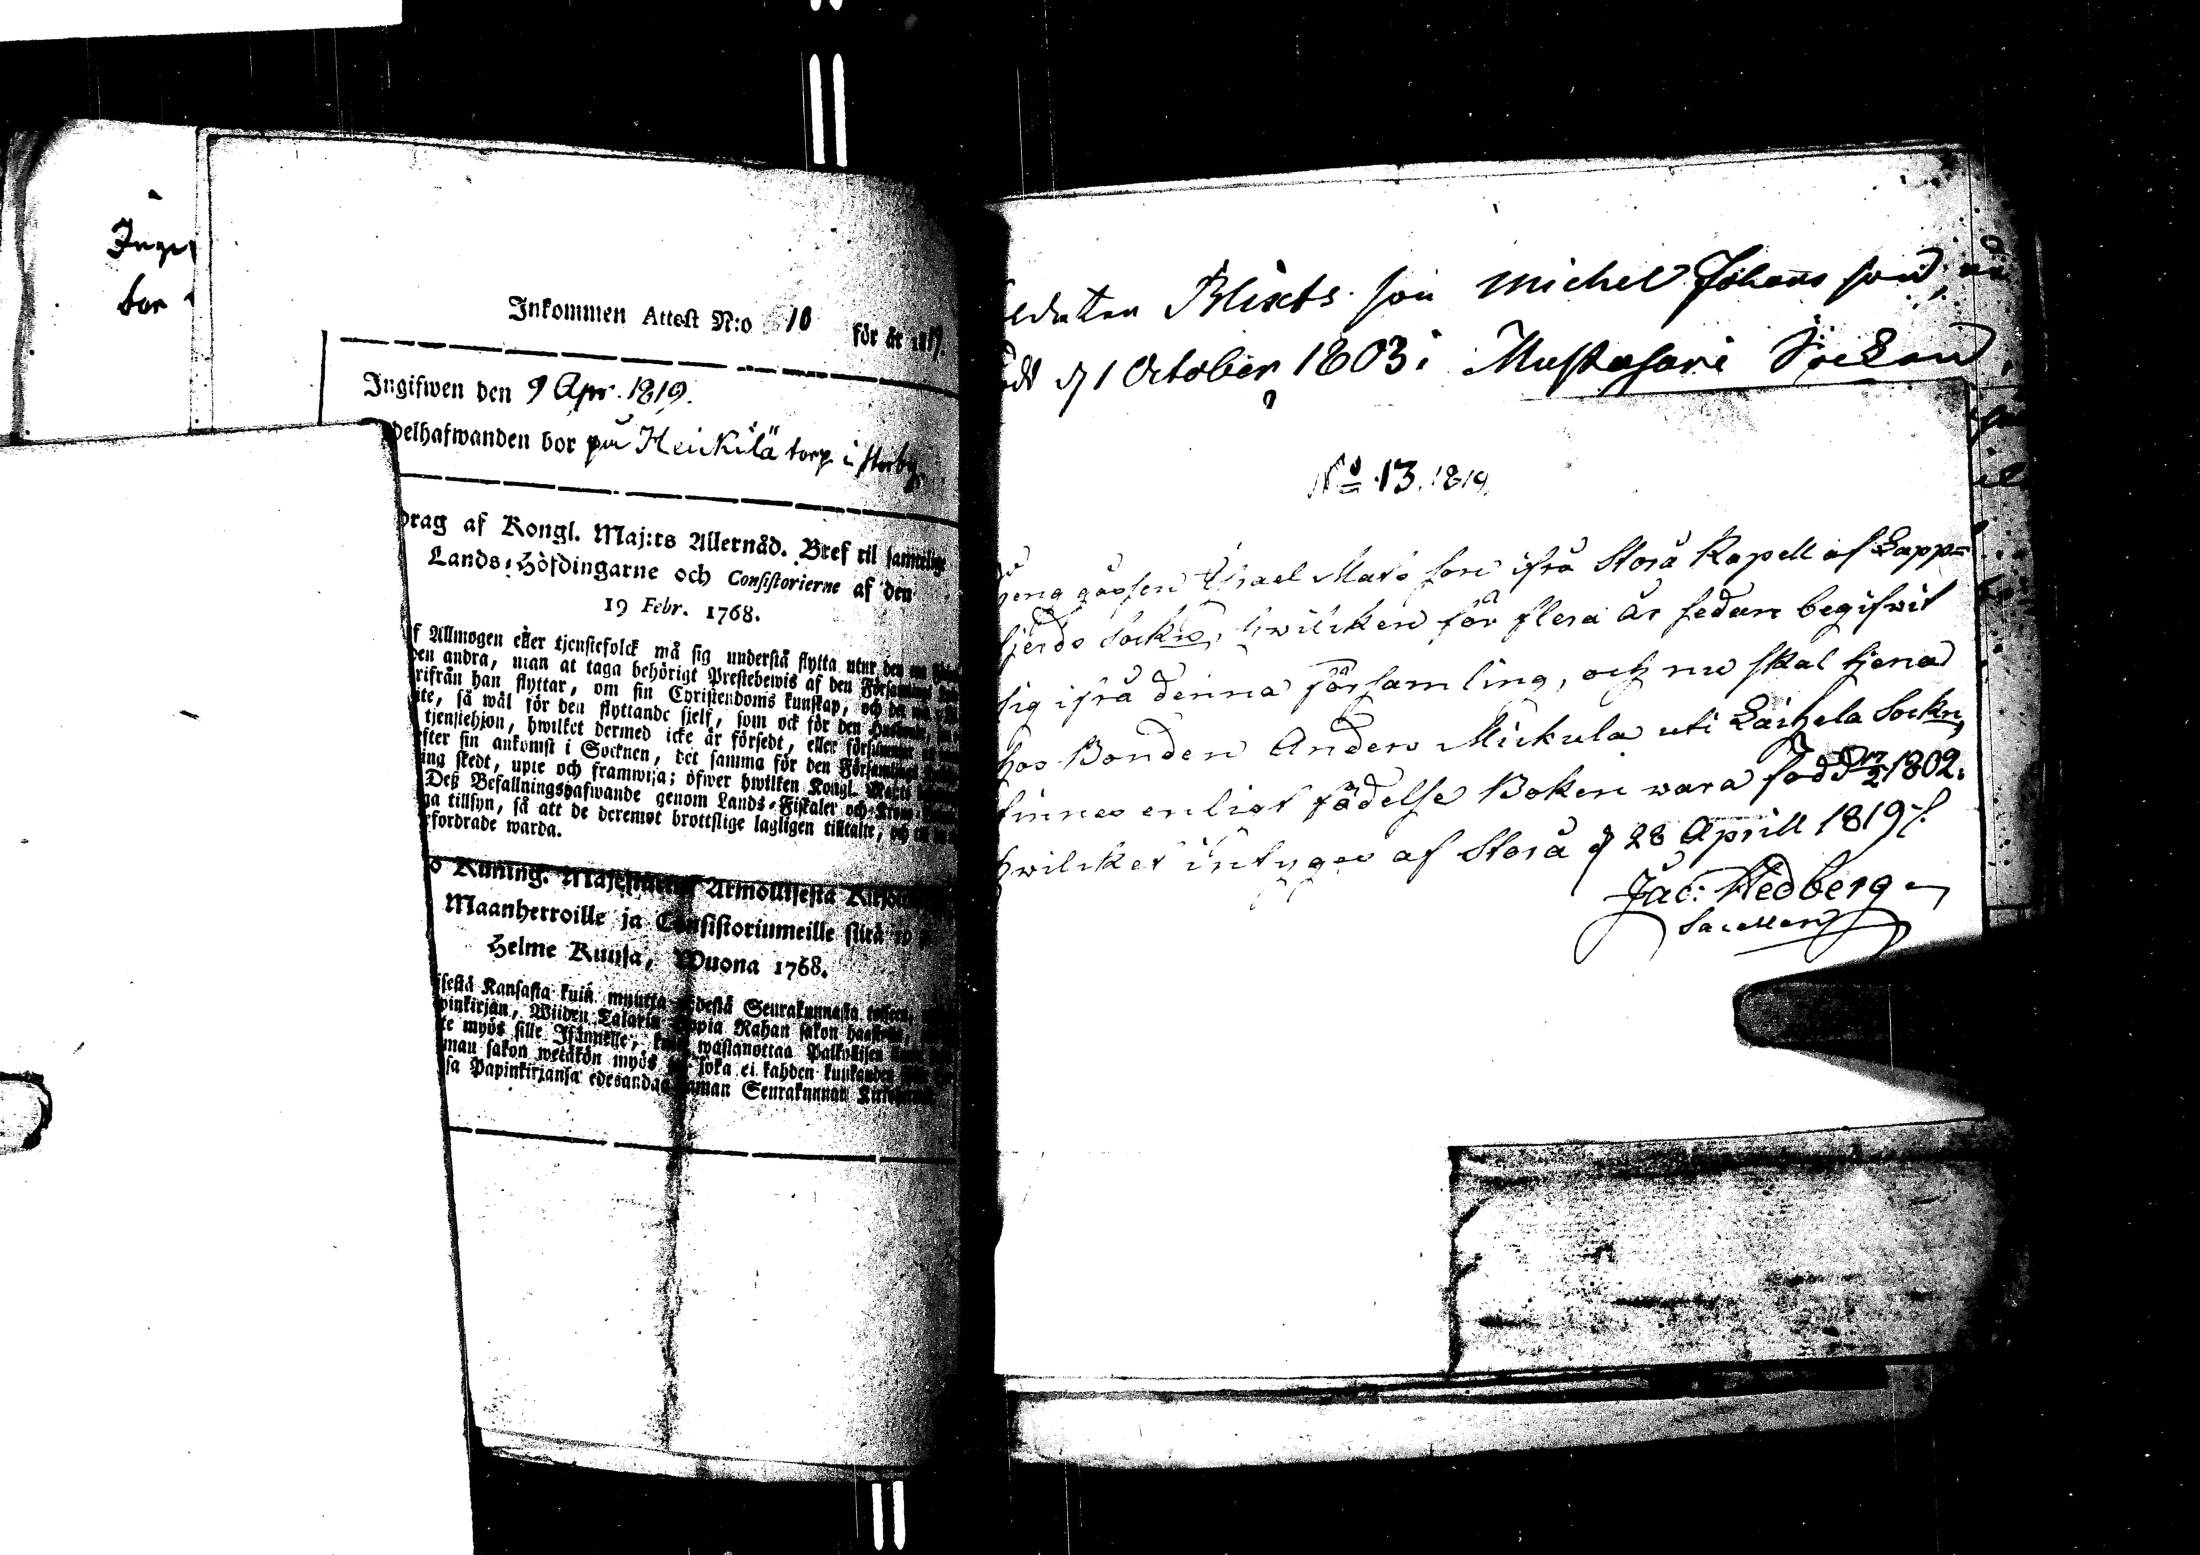 Inge
bor
Inkommen Attest N:o 10 för år 1819.
Ingifwen den 9 Apr. 1819.
delhafwanden bor på Heickilä torp i Storby
drag af Kongl. Maj:ts Allernåd. Bref til samtelige
Lands-Höfdingarne och Consistorierne af den
19 Febr. 1768.
f Allmogen eller tjenstefolck må sig understå flytta utur den en
en andra, utan at taga behörigt Prestebewis af den Församling
rifrån han flyttar, om sin Christendoms kunskap, och det wid
ite, så wäl för den flyttande sjelf, som ock för den Husbonde,
tjenstehjon, hwilket dermed icke är försedt, eller försummar
fter sin ankomst i Socknen, det samma för den Församlings
ing skedt, upte och framwisa; öfwer hwilken Kongl. Maj:ts
Deß Befallningshafwande genom Lands-Fiskaler och Krono
ga tillsyn, så att de deremot brottslige lagligen tilltalte, och
efordrade warda.
o Kuning. Majestätin Armollisesta Kirjasta
Maanherroille ja Consistoriumeille siitä 19 p.
Helme Kuusa, Wuona 1768.
isestä Kansasta kuin muutta yhdestä Seurakunnasta toiseen,
pinkirjan, Wiiden Talarin Hopia Rahan sakon haastolla,
te myös sille Isännälle, kuin wastanottaa Palkollisen
man sakon wetäkön myös se joka ei kahden kuukauden
sa Papinkirjansa edesandaa saman Seurakunnan Kirkoherralle
ldaten Blixts son Michel Johans son, nu
dd d 1 October 1803 i Mustasari Socken,
No 13. 1819.
Drenggåssen Israel Mats son ifrå Storå Kapell af Lapp=
fjerds Sockn, hwilcken för flera år sedan begifwit
sig ifrå denna församling, och nu skal tjena
hos Bonden Anders Mickula uti Laihela Sockn,
finnes enligt födelse Boken wara född d 17/2 1802.
hwilcket intygas af Storå d 28 Aprill 1819
Jac: Hedberg
Sacellan